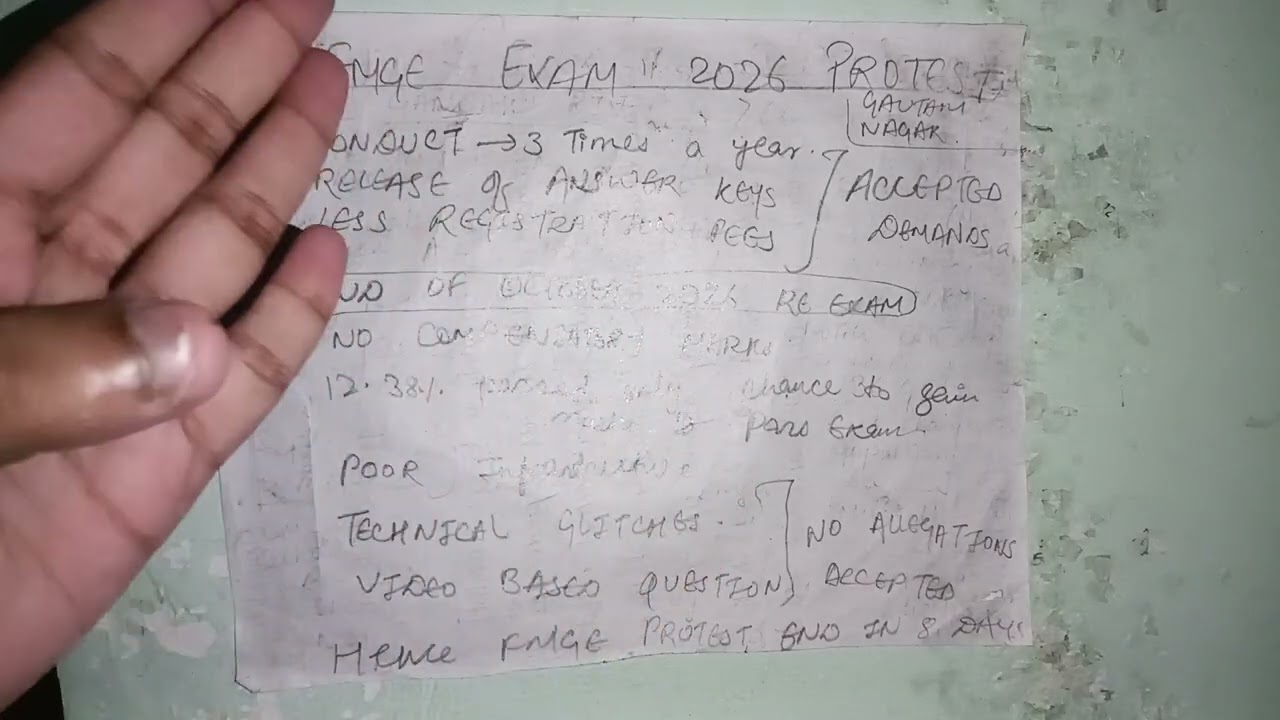 FMGE EXAM 2026 PROTEST
GAUTAM
NAGAR
ONDUCT → 3 Times a year.
RELEASE of ANSWER KEYS
LESS REGISTRATION FEES
ACCEPTED
DEMANDS
ND OF OCTOBER 2026 RE EXAM
NO COMPENSATORY MARKS
12.38%. passed only chance to gain
Pass Exam
POOR Infrastructure
TECHNICAL GLITCHES.
VIDEO BASED QUESTION
NO ALLEGATIONS
ACCEPTED
Hence FMGE PROTEST END IN 8 DAYS